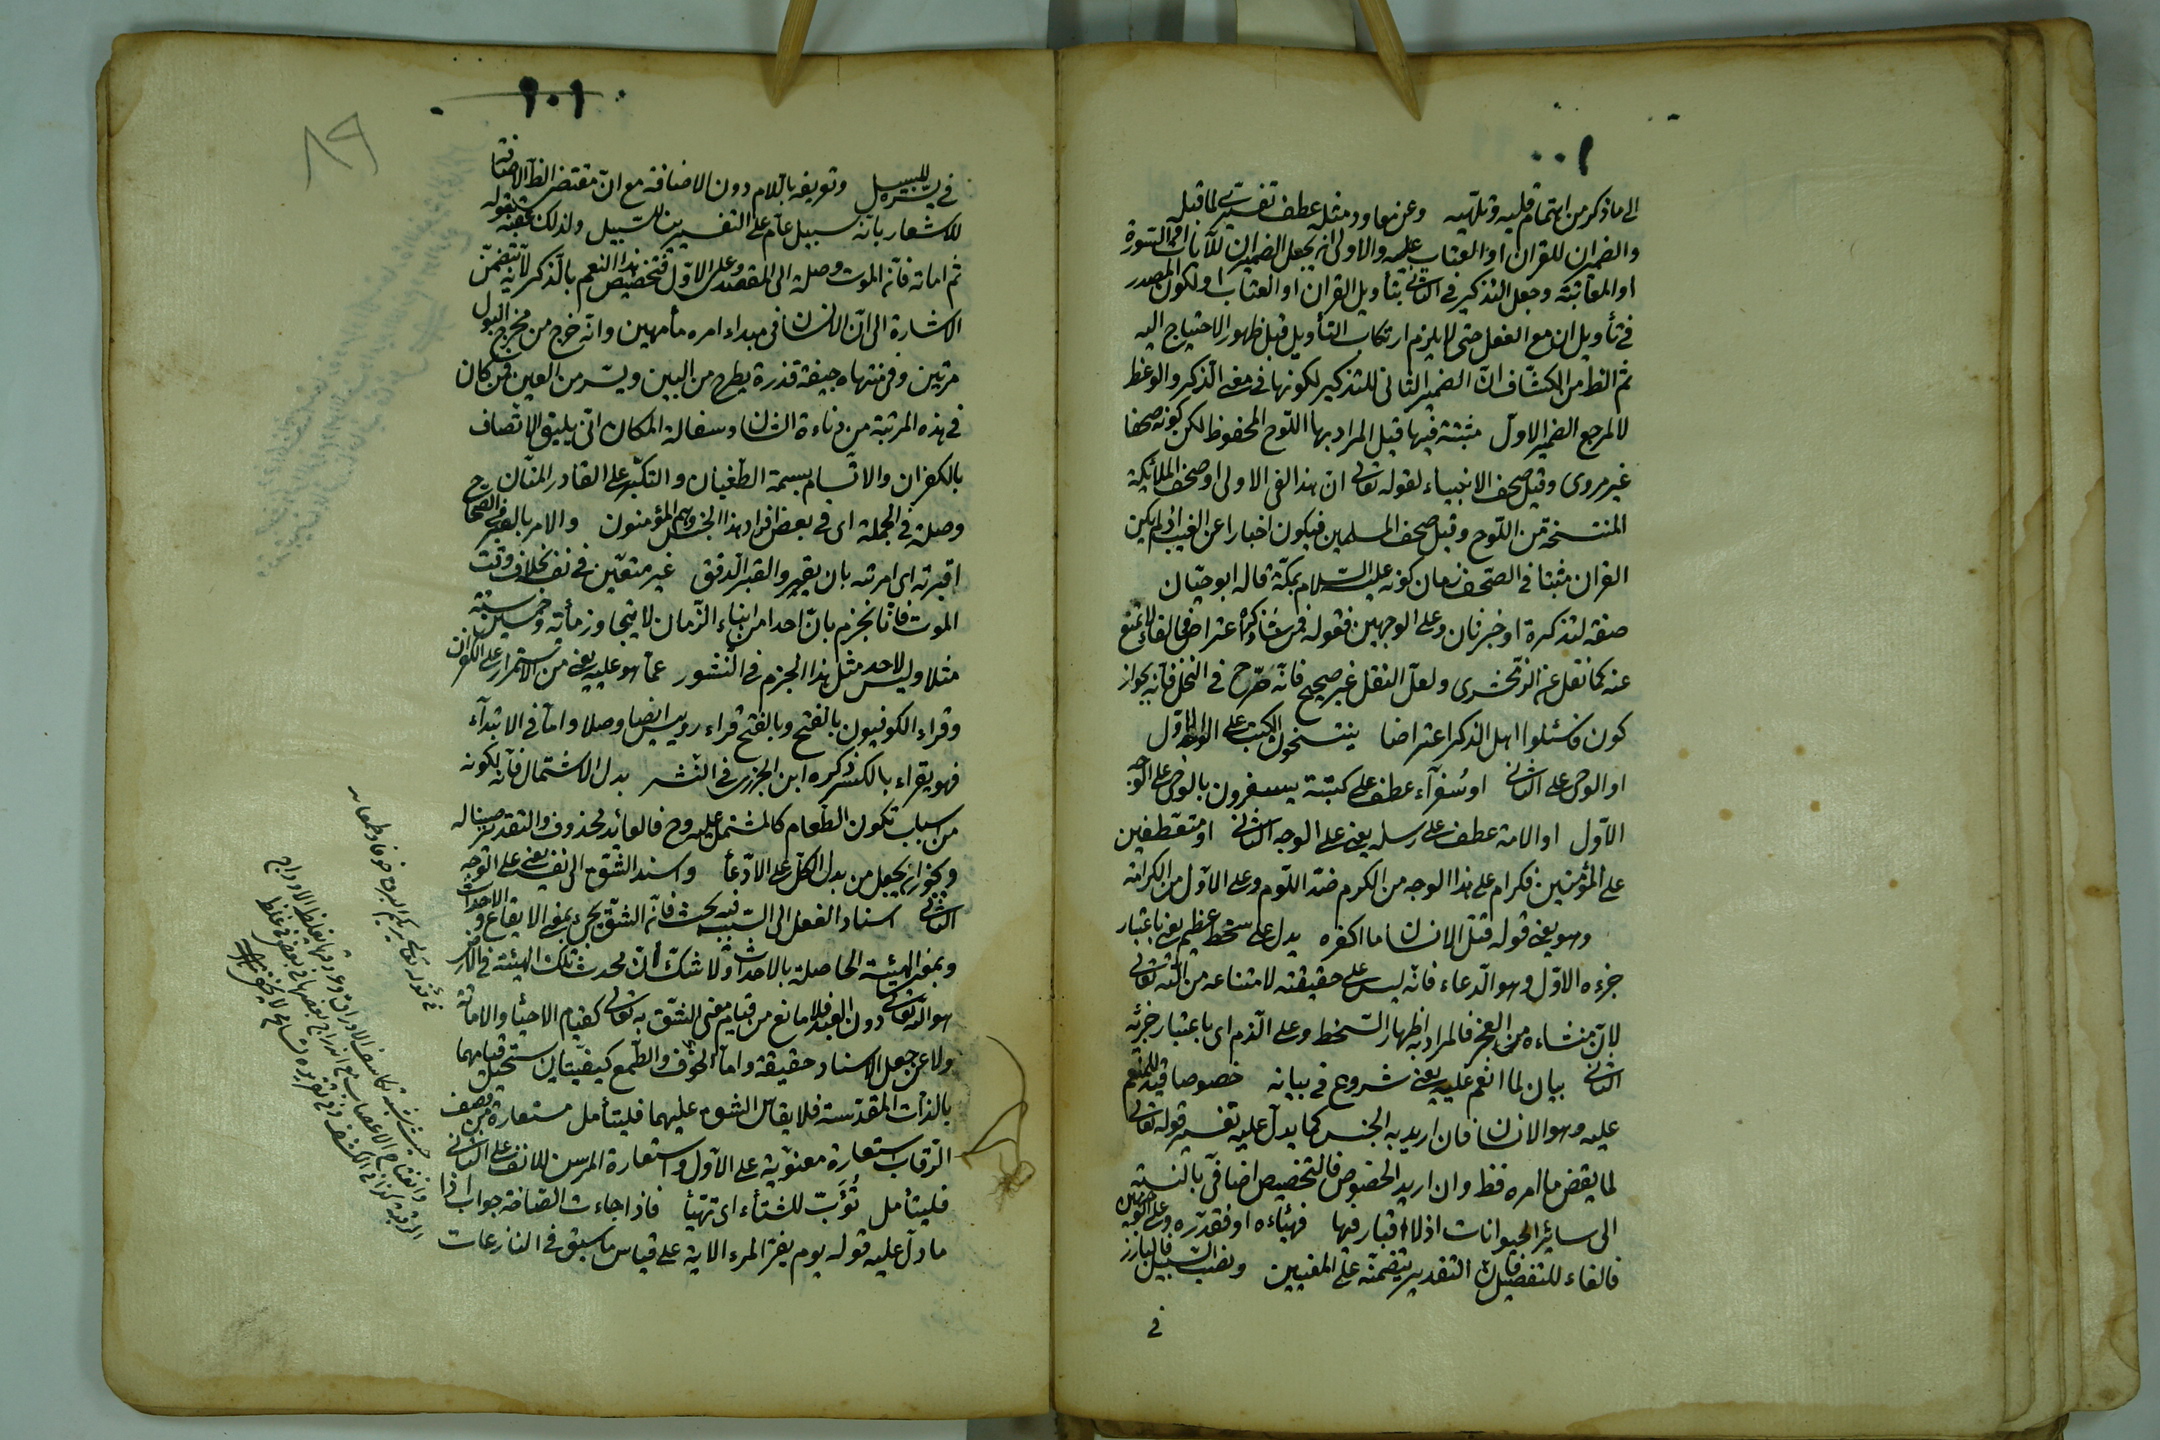 ١٠٠
الى ما ذكر من اهتمام قلبه وتلهيه وعن معاودة مثله عطف تفسيرى لما قبله
والضميران للقران او العتاب عليه والاولى ان يجعل الضميران للآيات او السورة
او المعاتبة وجعل التذكير فى الثانى بتأويل القران او العتاب او لكون المصدر
فى تأويل ان مع الفعل حتى لا يلزم ارتكاب التأويل قبل ظهور الاحتياج اليه
ثم الظ من الكشاف ان الضمير الثانى للتذكير لكونها فى معنى الذكر والوعظ
لا لمرجع الضمير الاول مثبتة فيها قيل المراد بها اللوح المحفوظ لكن كونه صحفا
غير مروى وقيل صحف الانبياء لقوله تعالى ان هذا لفى الاولى او صحف الملائكة
المنتسخة من اللوح وقيل صحف المسلمين فيكون اخبارا عن الغيب اذ لم يكن
القران مثبتا فى الصحف زمان كونه عليه السلام بمكة قاله ابو حيان
صفة لتذكرة او خبر ثان وعلى الوجهين فقوله فمن شاء ذكره اعتراض فى الفاء لا تمنع
عنه كما نقل عن الزمخشرى ولعل النقل غير صحيح فانه صرح فى النحل فانه بجواز
كون فاسئلوا اهل الذكر اعتراضا ينتسخون الكتب على الاول
او الوحى على الثانى او سفراء عطف على كتبة يسفرون بالوحى على الوجه
الاول او الامة عطف على رسله يعنى على الوجه الثانى او متعطفين
على المؤمنين فكرام على هذا الوجه من الكرم ضد اللوم وعلى الاول من الكرامة
وهو يعنى قوله قتل الانسان ما اكفره يدل على سخط عظيم يعنى باعتبار
جزءه الاول وهو الدعاء فانه ليس على حقيقته لامتناعه من الله تعالى
لان منشاءه من العجز فالمراد به اظهار السخط وعلى الذم اى باعتبار جزئه
الثانى بيان لما انعم عليه يعنى شروع فى بيانه خصوصا قيد للمنعم
عليه وهو الانسان فان اريد به الجنس كما يدل عليه تفسير قوله تعالى
لما يقض ما امره فظ وان اريد الخصوص فالتخصيص اضافى بالنسبة
الى سائر الحيوانات اذ لا اقبار فيها فهيئاه او فقدره وعلى الوجهين
فالفاء للتفصيل فان التقدير يتضمنه على المعنيين ونصب السبيل فالبارز
فى
١٠١
٨٩
فى يسره للسبيل وتعريفه باللام دون الاضافة مع ان مقتضى الظ الاضافة
للاشعار بانه سبيل عام على التفسيرين للسبيل ولذلك عقبه بقوله
ثم اماته فانه الموت وصلة الى المقصد وعلى الاول فتخصيص هذا النعم بالذكر لانه تتضمن
الاشارة الى ان الانسان فى مبداء امره ماء مهين وانه خرج من مخرج البول
مرتين وفى منتهاه جيفة قذرة يطرح من البين ويستر من العين فمن كان
فى هذه المرتبة من دناءة الشان وسفالة المكان انى يليق الاتصاف
بالكفران والاتسام بسمة الطغيان والتكبر على القادر المنان
وصلة فى الجملة اى فى بعض افراد هذا الجنس وهم المؤمنون والامر بالقبر فى الصحاح
اقبرته اى امرته بان يقبر والقبر الدفن غير متعين فى نفسه بخلاف وقت
الموت فانا نجزم بان احدا من ابناء الزمان لا يتجاوز مأته وخمسين سنة
مثلا وليس لاحد مثل هذا الجزم فى النشور عما هو عليه يعنى من الاستمرار على الكفران
وقراء الكوفيون بالفتح وبالفتح قراء رويس ايضا وصلا واما فى الابتداء
فهو يقراء بالكسر ذكره ابن الجزرى فى النشر بدل الاشتمال فانه لكونه
من اسباب تكون الطعام كالمشتمل عليه وح فالعائد محذوف والتقدير صببنا له
ويجوز ان يجعل من بدل الكل على الادعاء واسند الشق الى نفسه يعنى على الوجه
الثانى اسناد الفعل الى السبب فيه بحث فان الشق يجئ بمعنى الايقاع والاحداث
وبمعنى الهيئة الحاصلة بالاحداث ولا شك ان محدث تلك الهيئة فى الارض
هو الله تعالى دون العبد فلا مانع من قيام معنى الشق به تعالى كقيام الاحياء والاماتة
ولا عن جعل الاسناد حقيقة واما الخوف والطمع كيفيتان يستحيل قيامهما
بالذات المقدسة فلا يقاس الشق عليهما فليتأمل مستعارة من وصف
الرقاب استعارة معنوية على الاول واستعارة المرسن للانف على الثانى
فليتأمل تؤبّ للشتاء اى تهيأ فاذا جاءت الصاخة جواب اذا
ما دل عليه قوله يوم يفر المرء الاية على قياس ما سبق فى النازعات
فى قوله تعالى يريكم البرق خوفا وطمعا